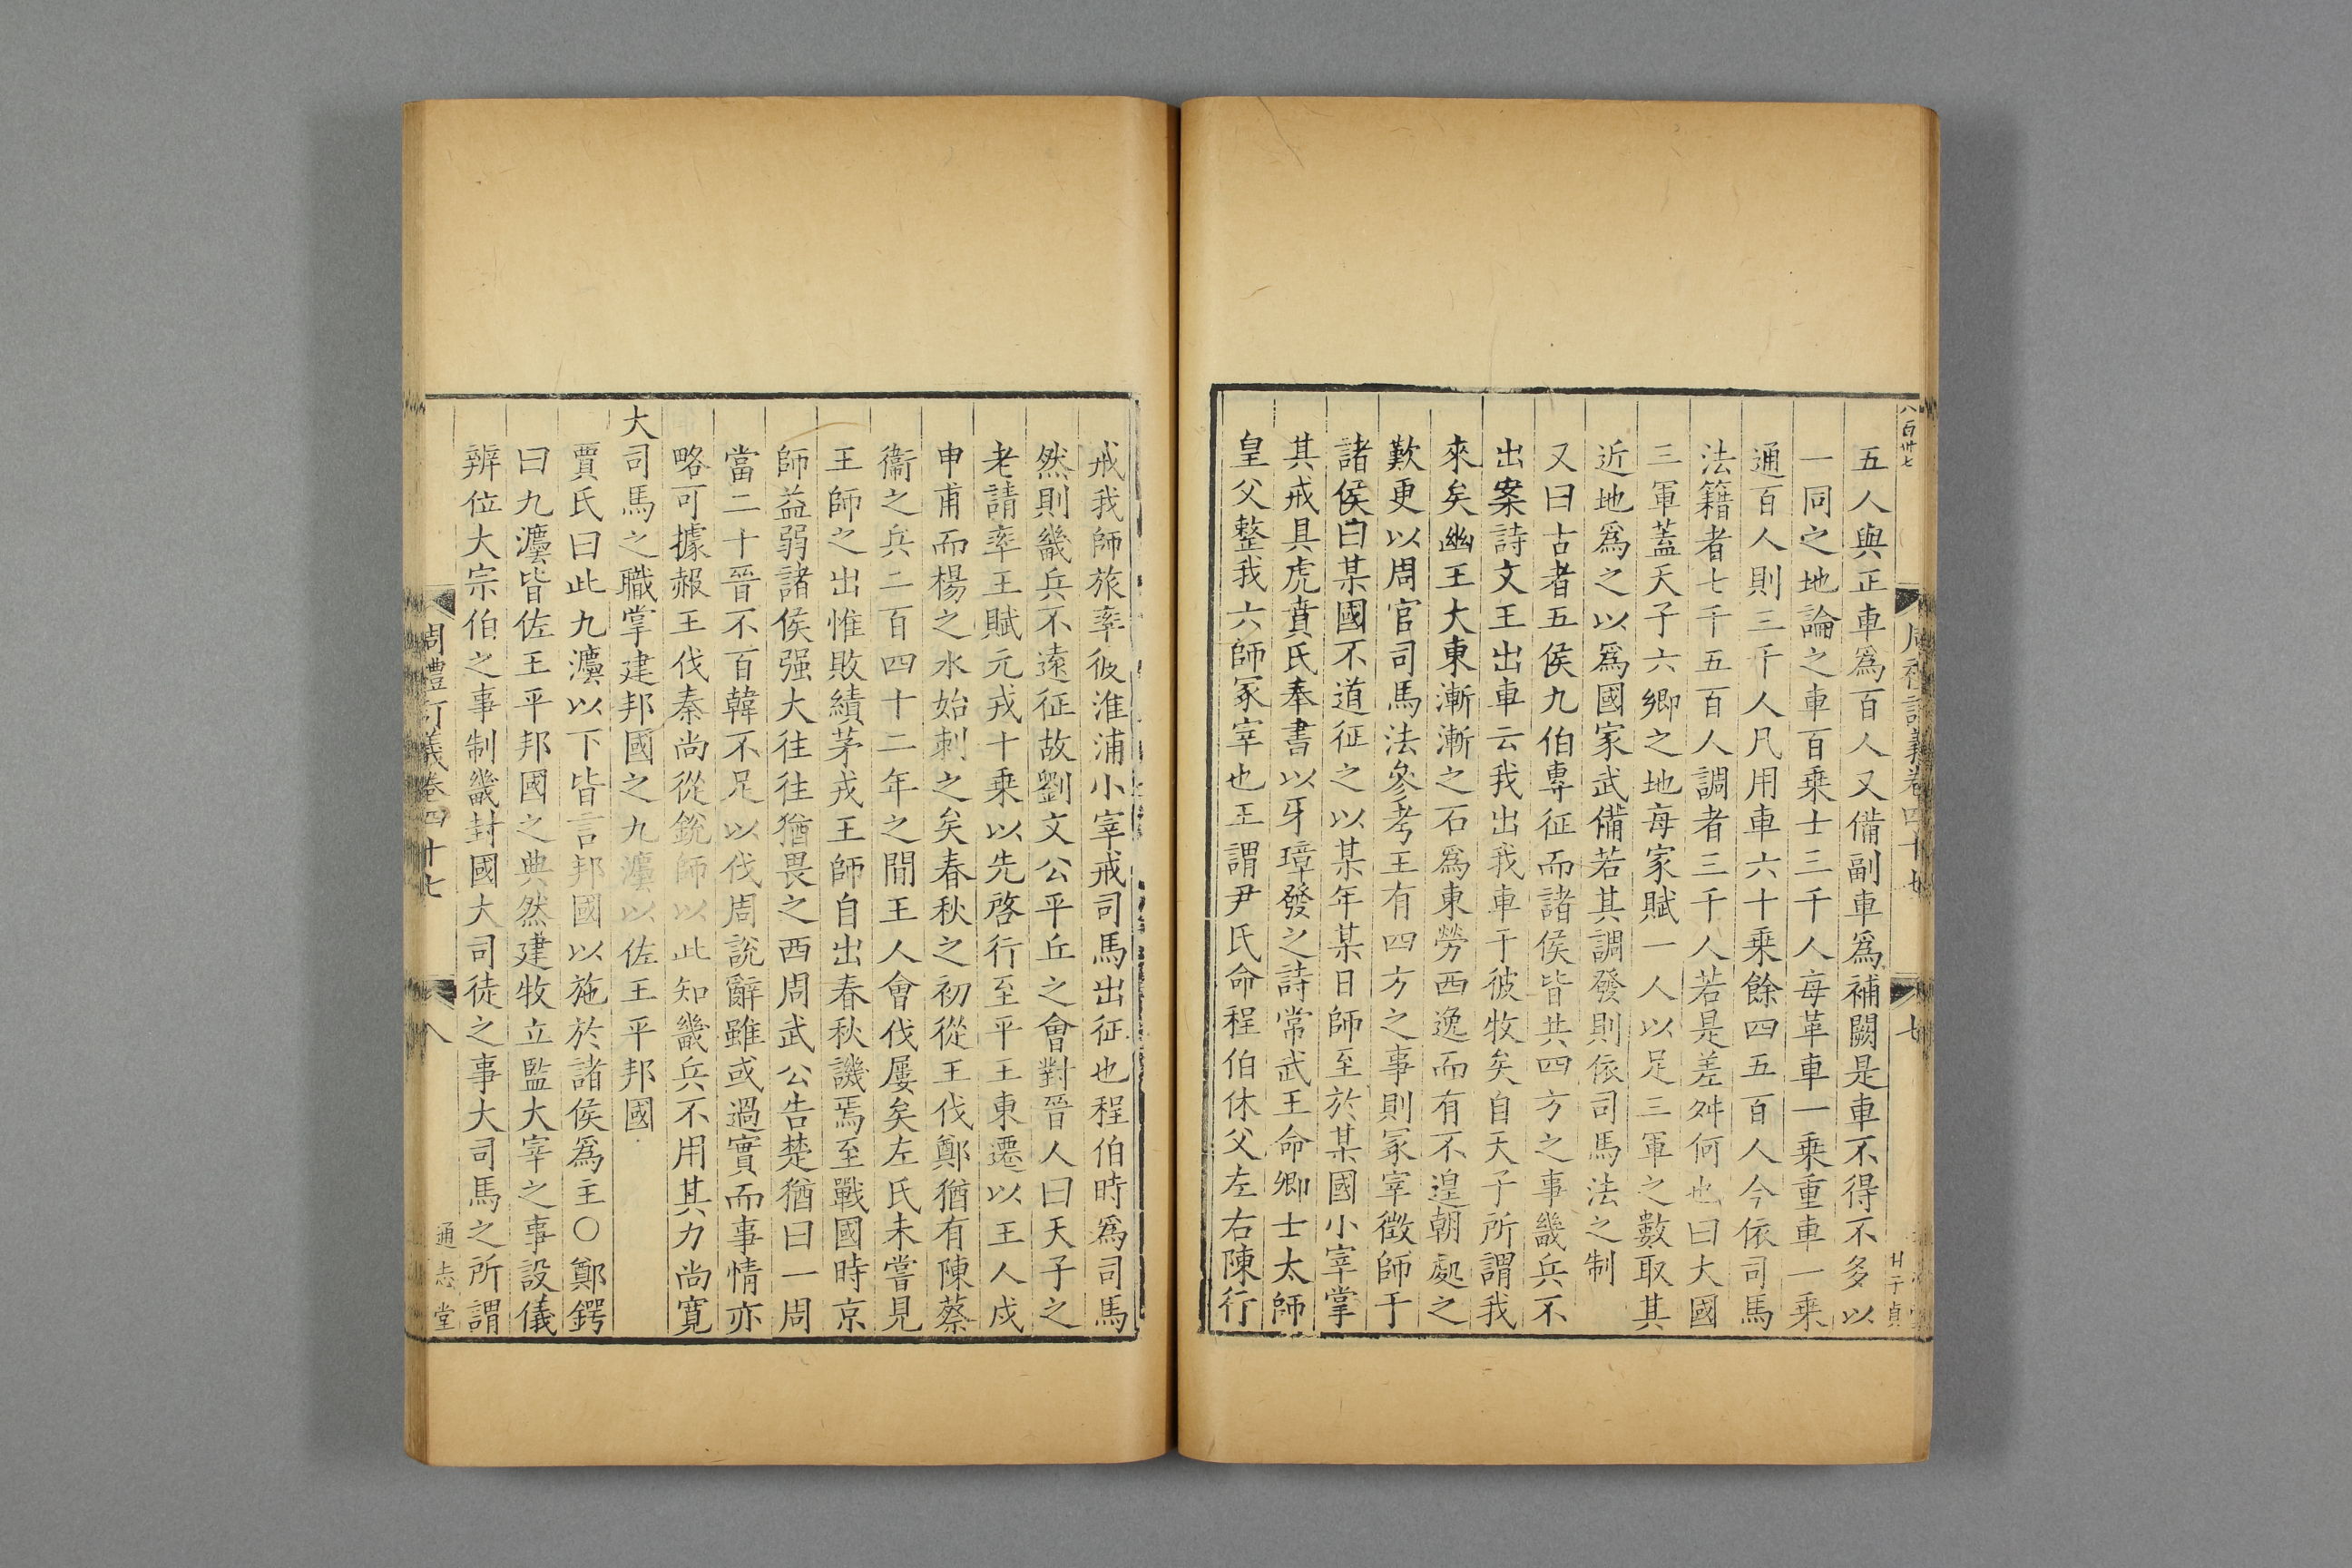 八百卅七
五人與正車爲百人又備副車爲補闕是車不得不多以
一同之地論之車百乗士三千人每革車一乗重車一乗
通百人則三千人凡用車六十乗餘四五百人今依司馬
法籍者七千五百人調者三千人若是差舛何也曰大國
三軍蓋天子六鄉之地每家賦一人以足三軍之數取其
近地爲之以爲國家武備若其調發則依司馬法之制
又曰古者五侯九伯專征而諸侯皆共四方之事畿兵不
出案詩文王出車云我出我車于彼牧矣自天子所謂我
來矣幽王大東漸漸之石爲東勞西逸而有不遑朝處之
歎更以周官司馬法參考王有四方之事則冢宰徵師于
諸侯曰某國不道征之以某年某日師至於某國小宰掌
其戒具虎賁氏奉書以牙璋發之詩常武王命卿士太師
皇父整我六師冢宰也王謂尹氏命程伯休父左右陳行
戒我師旅率彼淮浦小宰戒司馬出征也程伯時爲司馬
然則畿兵不遠征故劉文公平丘之會對晉人曰天子之
老請率王賦元戎十乗以先啓行至平王東遷以王人戍
申甫而楊之水始刺之矣春秋之初從王伐鄭猶有陳蔡
衞之兵二百四十二年之間王人會伐屢矣左氏未嘗見
王師之出惟敗績茅戎王師自出春秋譏焉至戰國時京
師益弱諸侯强大往往猶畏之西周武公告楚猶曰一周
當二十晉不百韓不足以伐周說辭雖或過實而事情亦
略可據赧王伐秦尚從銳師以此知畿兵不用其力尚寬
大司馬之職掌建邦國之九灋以佐王平邦國
賈氏曰此九灋以下皆言邦國以施於諸侯爲主○鄭鍔
曰九灋皆佐王平邦國之典然建牧立監大宰之事設儀
辨位大宗伯之事制畿封國大司徒之事大司馬之所謂
周禮訂義卷四十七
八
通志堂